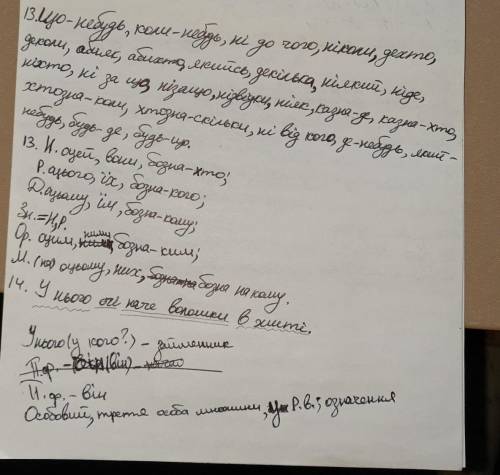 13. Що-небудь, коли-небудь, ні до чого, ніколи, дехто,
деколи, абияк, абихто, якийсь, декілька, ніякий, ніде,
ніхто, ні за що, нізащо, нізвідки, ніяк, казна-де, казна-хто,
хтозна-коли, хтозна-скільки, ні від кого, де-небудь, який-
небудь, будь-де, будь-що.
13. Н. оцей, вони, бозна-хто;
Р. оцього, їх, бозна-кого;
Д. оцьому, їм, бозна-кому;
Зн. = Н, Р.
Ор. оцим, ними, бозна-ким;
М. (на) оцьому, них, бозна на кому.
14. У нього очі наче волошки в житі.
У нього (у кого?) - займенник
П.ф. - (він)
П.ф. - він
Особовий, третя особа множини, у Р.в.; означення